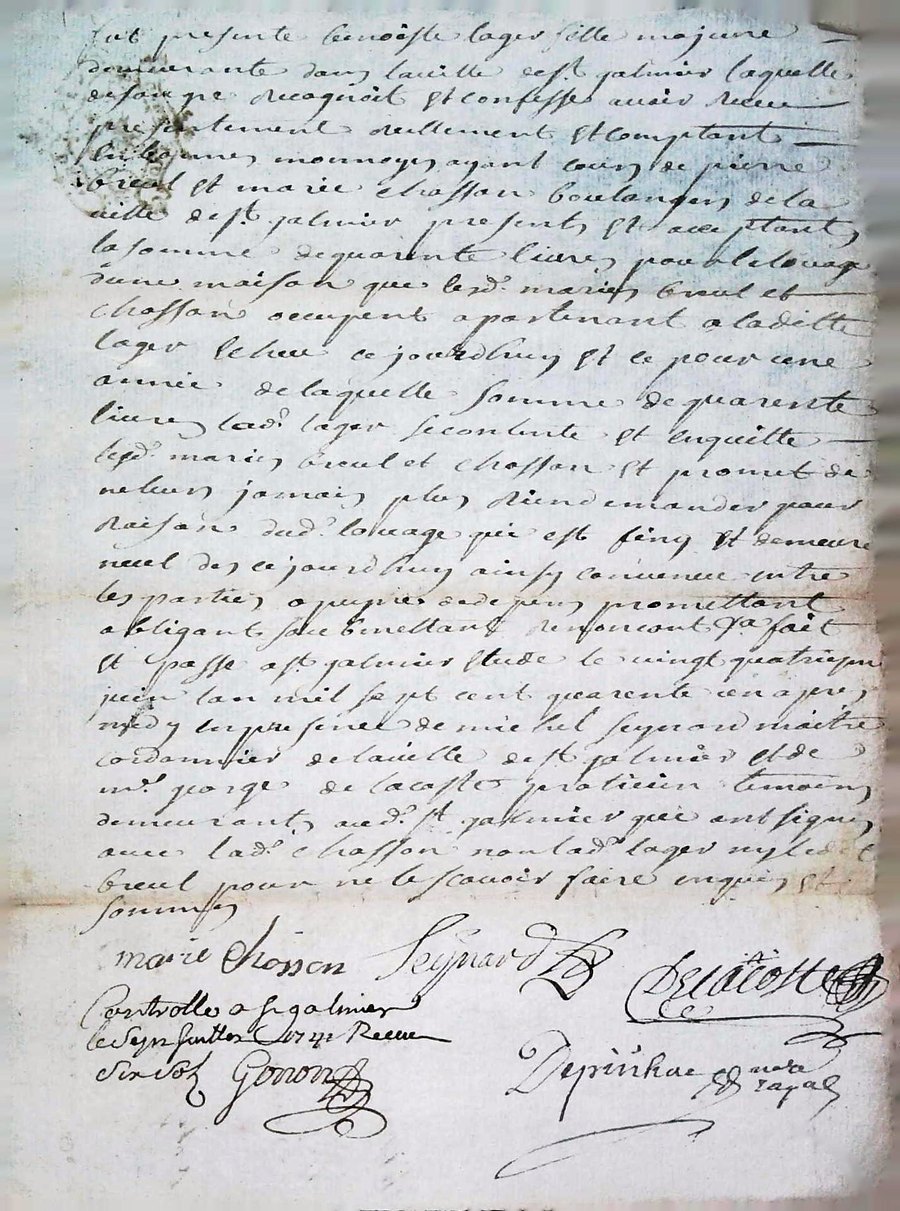 fut presente benoiste lager fille majeure
demeurante dans laville de st galmier laquelle
de son gre Recognoit et confesse avoir Receu
presentement Reellement et comptant
En bonnes monnoyes ayant cours de pierre
breul et marie chosson boulangers de la
ville de st galmier presents et acceptants
la somme de quarente livres pour le louage
dune maison que lesds. maries breul et
chosson occupent apartenant a laditte
lager Echeu ce jourdhuy et ce pour une
année de laquelle somme de quarente
livres lade. lager se contente et enquitte
lesds. maries breul et chosson et promet de
ne leurs jamais plus Rien demander pour
Raison dud. louage qui est finy et demeure
nul des ce jourdhuy ainsy convenu entre
les parties a peyne de depens promettant
obligant soubmettant Renoncant &a fait
et passe a st galmier Etude le vingt quatrieme
juin lan mil sept cent quarente un apres
midy En presence de michel seynard maitre
cordonnier de laville de st galmier et de
me. george de lacoste praticien temoins
demeurants aud. st galmier qui ont signés
avec lade. chosson non lade. lager ny led
breul pour ne le scavoir faire enquis et
sommes
marie chosson Seÿnard Delacoste
Controlle a st galmier
le Sept juillet 1741 Receu
Six Sols Gonon
Depinhac nore
royal